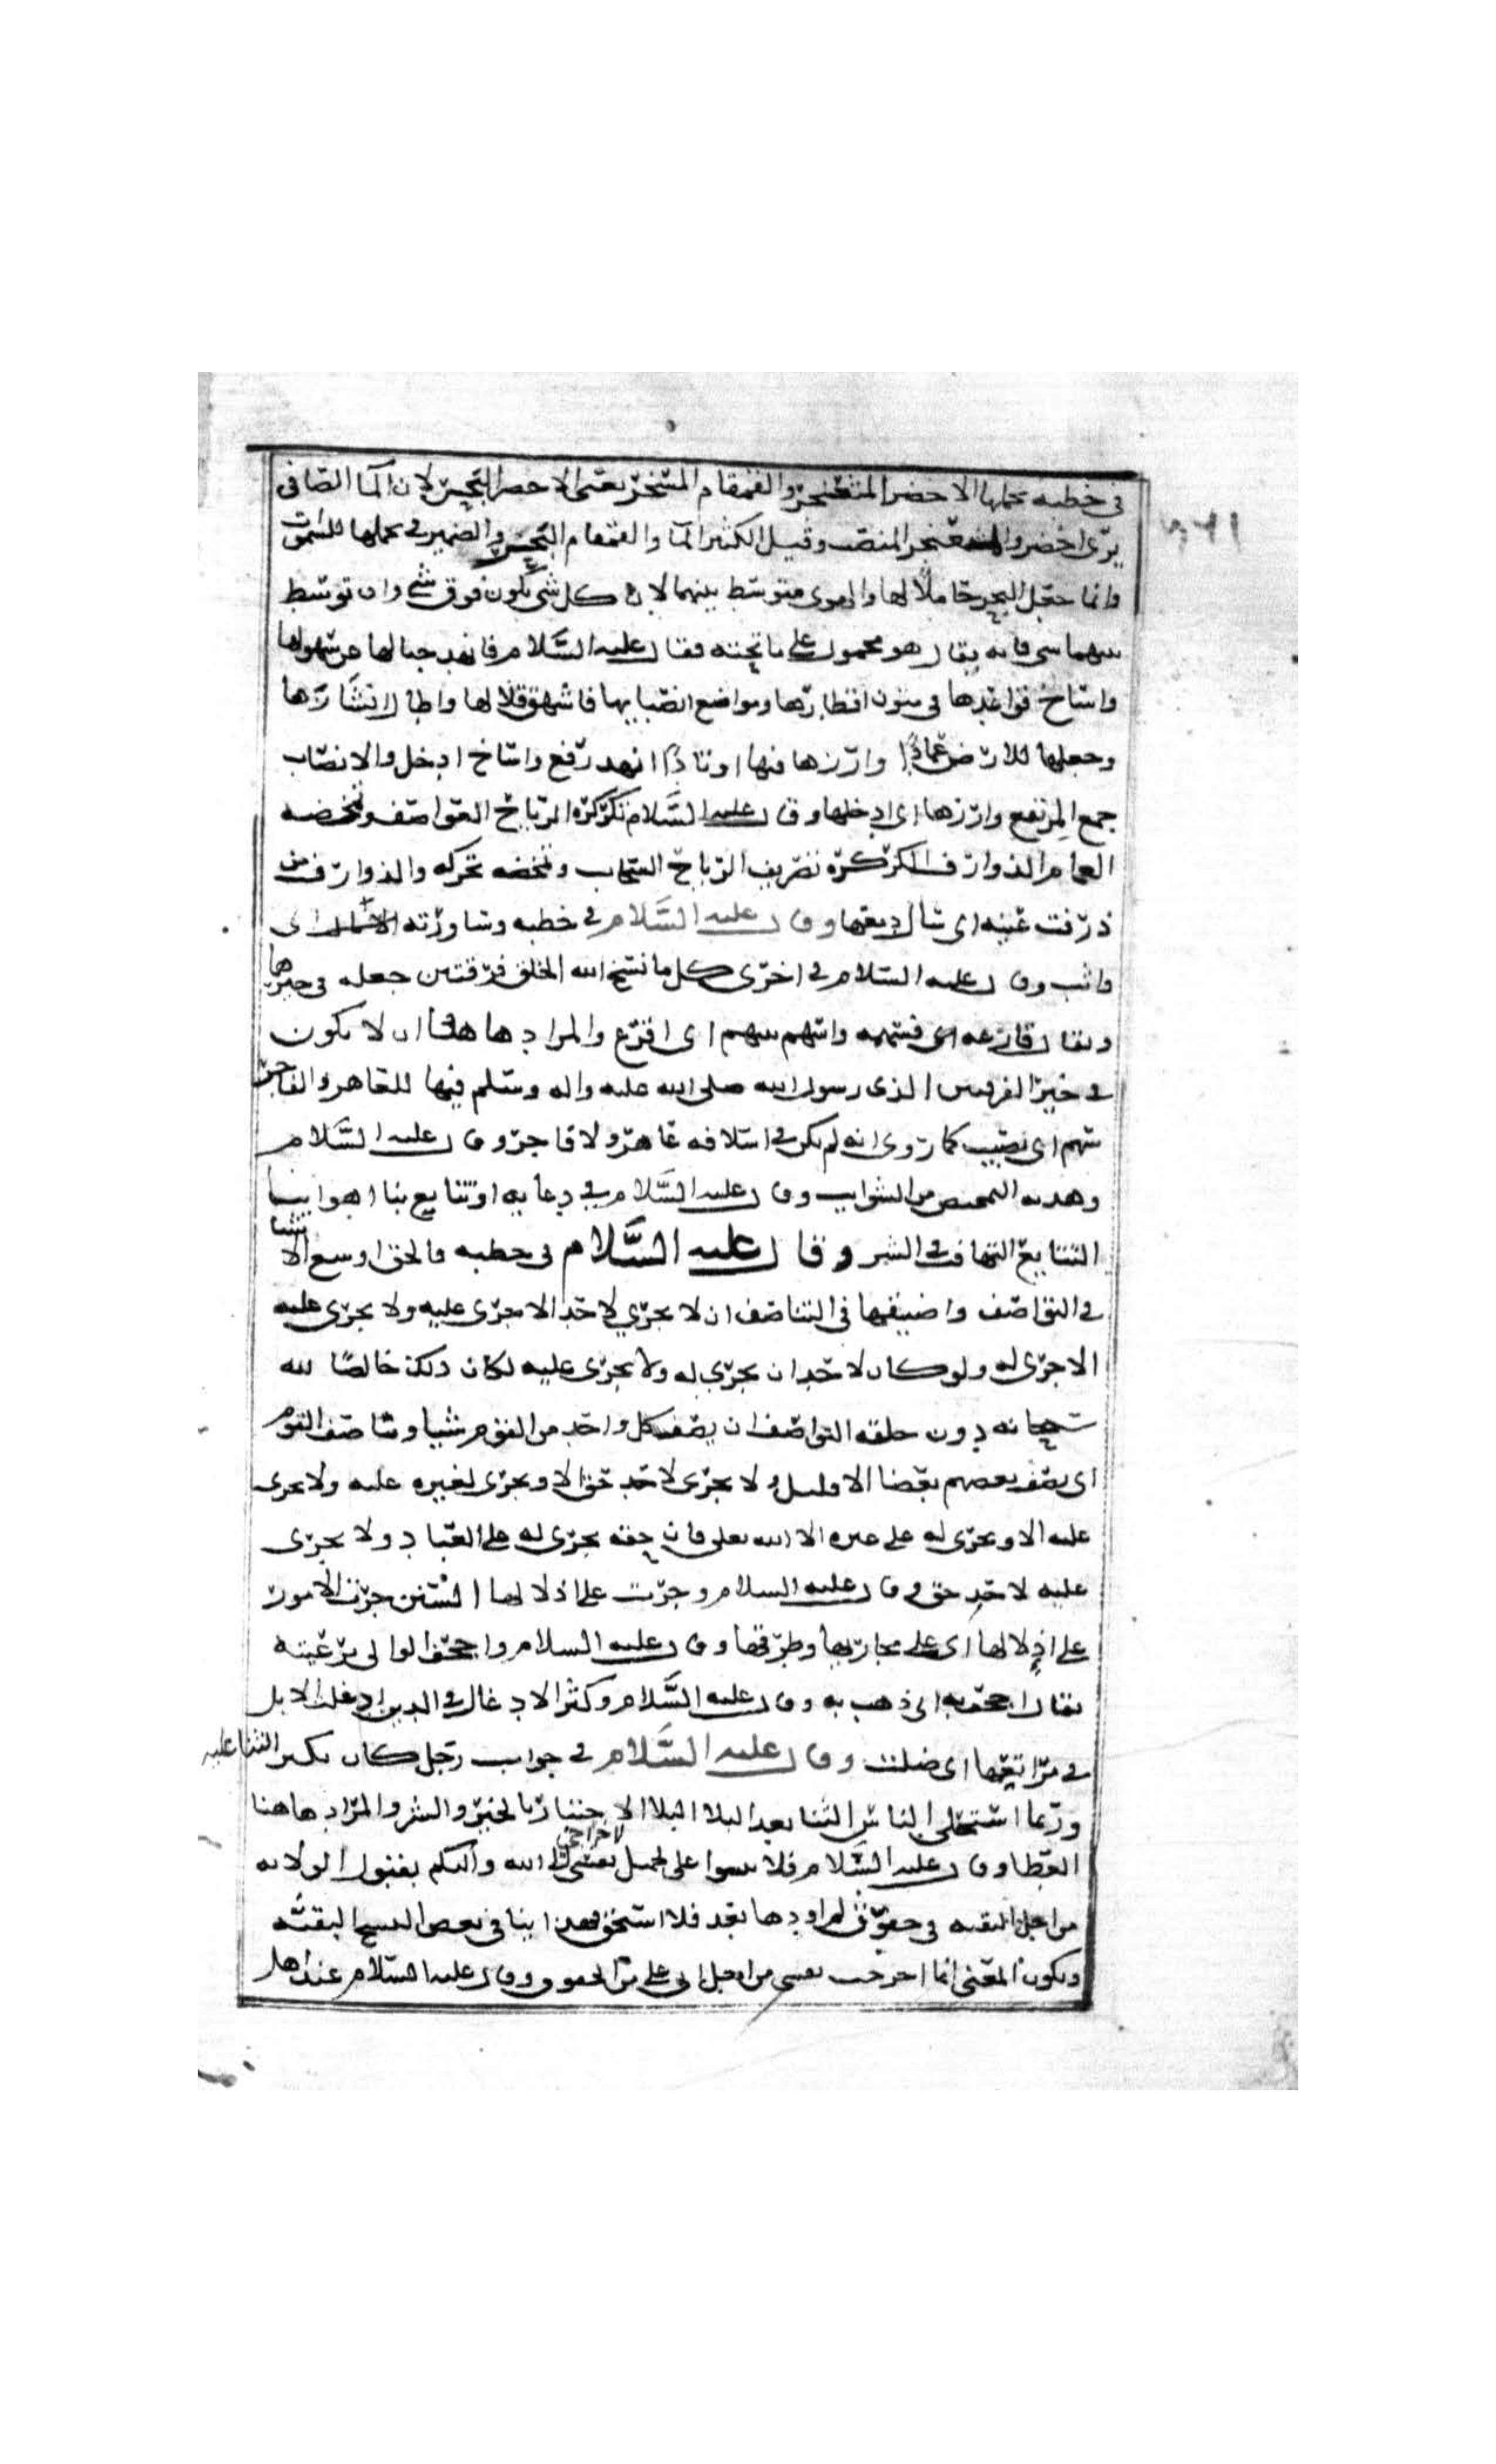 في خطبه يحملها الاخضر المثعنجر والقمقام المسخر يعني الاخضر البحر لان المآ الصافي
يرى اخضر والمثعنجر المنصب وقيل الكثير المآ والقمقام البحر والضمير في يحملها للسموات
وانما جعل البحر حاملًا لها والهوى متوسط بينهما لان كل شي يكون فوق شي وان توسط
بينهما شي فانه يقال هو محمول على ما تحته فقال عليه السَّلام فانهد جبالها عن سهولها
واساخ قواعدها في متون اقطارها ومواضع انصابها فاشهق قلالها واطال انشازها
وجعلها للارض عمادًا وارزها فيها اوتادًا انهد رفع واساخ ادخل والانصاب
جمع المرتفع وارزها اي ادخلها وقال عليه السَّلام تكركره الرياح العواصف وتمخضه
الغمام الذوارف الكركرة تصريف الرياح السحاب وتمخضه تحركه والذوارف من
ذرفت عينه اي سال دمعها وقال عليه السَّلام في خطبه وساورته اي
واثب وقال عليه السلام في اخرى كل ما نسخ الله الخلق فرقتين جعله في خيرها
ويقال قارعه اي قسمه واسهم بينهم اي اقرع والمراد هاهنا ان لا يكون
في خير الفريقين الذى رسول الله صلى الله عليه واله وسلم فيها للعاهر والفاجر
سهم اي نصيب كما روى انه لم يكن في اسلافه عاهر ولا فاجر وقال عليه السَّلام
وهدبه التمحيص من الشوايب وقال عليه السَّلام في دعايه او تتايع بنا اهواينا
التتايع التهافت في الشر وقال عليه السَّلام في خطبه فالحق اوسع الاشيا
في التواصف واضيقها في التناصف ان لا يجري لاحد الا جرى عليه ولا يجرى عليه
الا جرى له ولو كان لاحد ان يجري له ولا يجرى عليه لكان ذلك خالصًا لله
سبحانه دون خلقه التواصف ان يصف كل واحد من القوم شيا وتناصف القوم
اي بعضهم بعضا الا ولا يجرى لاحد حق الا ويجرى لغيره عليه ولا يجرى
عليه الا ويجرى له على غيره الا الله تعلى فان حقه يجرى له على العباد ولا يجرى
عليه لاحد حق وقال عليه السلام وجرت على اذلالها السنن جرت الامور
على اذلالها اى على مجاريها وطرقها وقال عليه السلام واجحف الوالي برعيته
يقال اجحف به اي ذهب به وقال عليه السَّلام وكثر الادغال في الدين ادغلت الابل
في مراتعها اي ضلت وقال عليه السَّلام في جواب رجل كان يكثر الثنا عليه
وربما استحلى الناس الثنا بعد البلا البلا الاختبار بالخير والشر والمراد هاهنا
العطا وقال عليه السَّلام فلا تثنوا على بجميل لاخراجي نفسى الى الله واليكم يقبول الولايه
من اجل التقيه في حقوق لم اودها بعد فلا استحق بهذا ثنا في بعض النسخ البقيه
ويكون المعنى انما اخرجت نفسي من اجل الى على من الحقوق وقال عليه السَّلام عند اهل